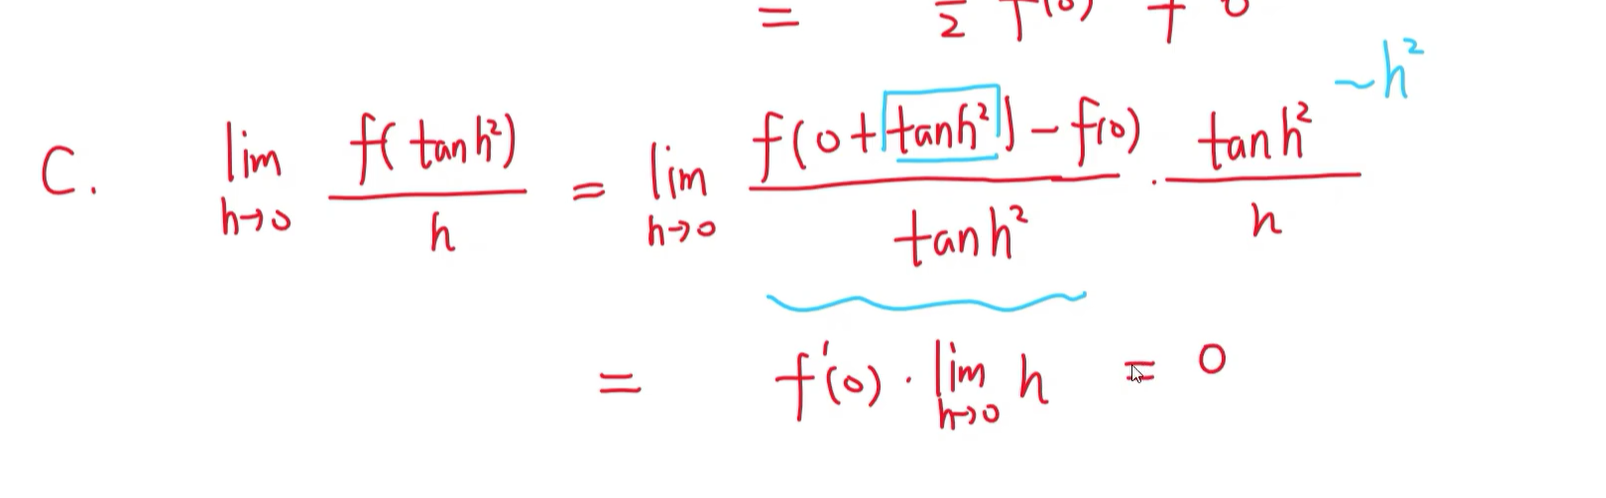 = 1/2 f'(0) + 0
~h²
C. lim h→0 f(tanh²)/h = lim h→0 (f(0+tanh²)-f(0))/tanh² · tanh²/h
= f'(0) · lim h→0 h = 0